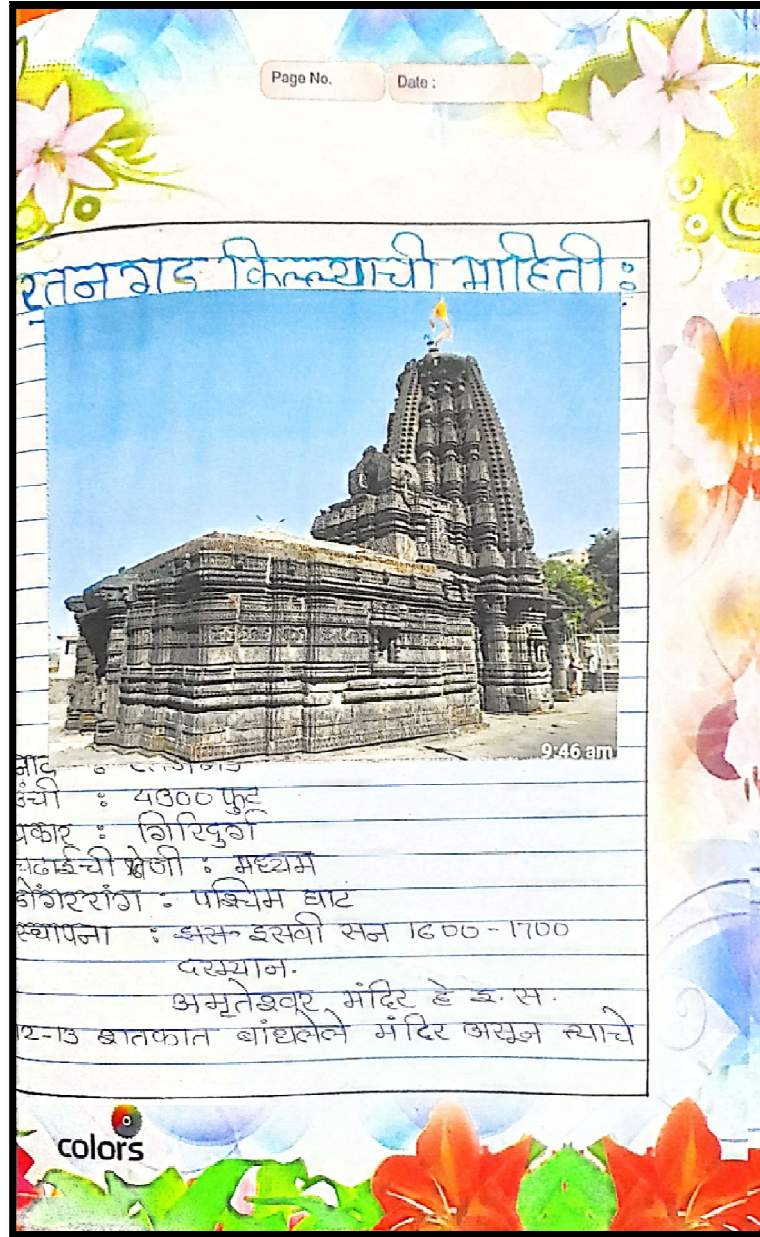 Page No.
Date :
रतनगड किल्ल्याची माहिती :
9:46 am
नाव : रतनगड
उंची : 4300 फुट
प्रकार : गिरिदुर्ग
चढाईची श्रेणी : मध्यम
डोंगररांग : पश्चिम घाट
स्थापना : इसवी सन 1600-1700
दरम्यान.
अमृतेश्वर मंदिर हे इ. स.
12-13 शतकात बांधलेले मंदिर असून त्याचे
colors